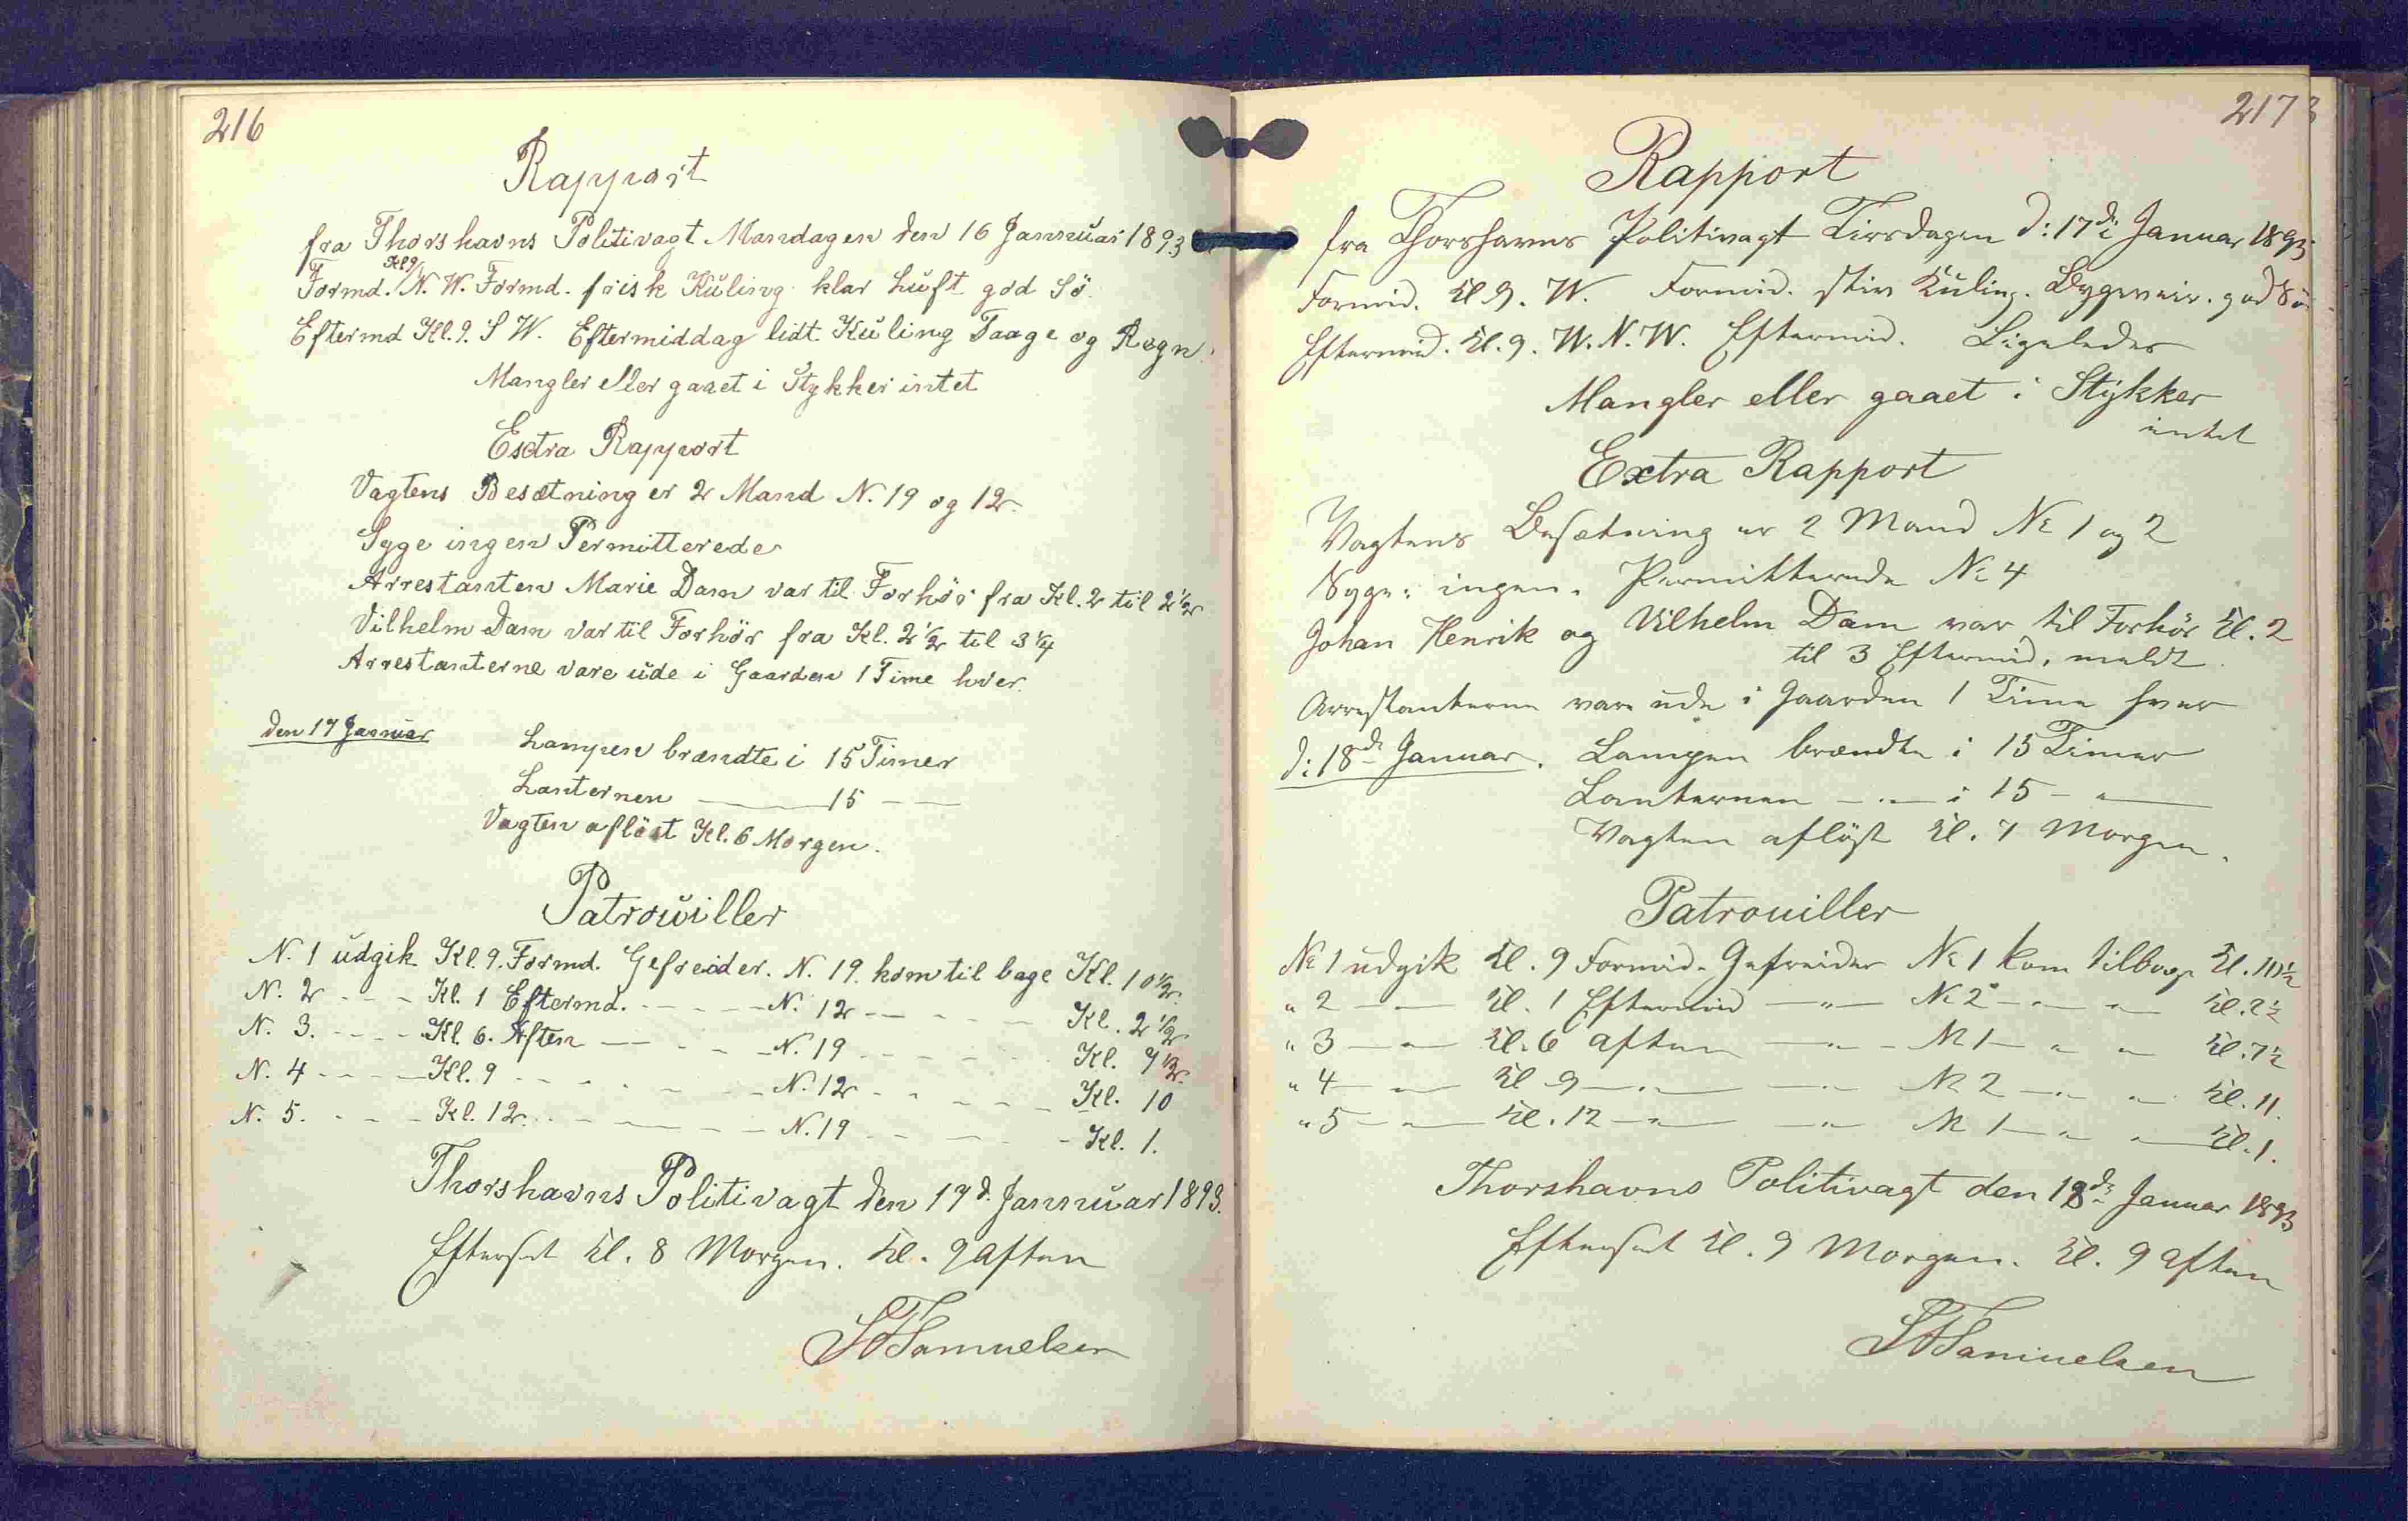 216
Rapport
fra Thorshavns Politivagt Mandagen den 16 Januar 1893
Formd. Kl 9 N. W. Formd. frisk Kuling klar Luft god Sö.
Eftermd Kl. 9. S W. Eftermiddag lidt Kuling Taage og Regn.
Mangler eller gaaet i Stykker intet
Extra Rapport
Vagtens Besætning er 2 Mand N. 19 og 12.
Syge ingen Permitterede
Arrestanten Marie Dam var til Forhör fra Kl. 2 til 2½
Vilhelm Dam var til Forhör fra Kl. 2½ til 3¼
Arrestanterne vare ude i Gaarden 1 Time hver.
den 17 Januar Lampen brændte i 15 Timer
Lanternen — 15 — —
Vagten aflöst Kl. 6 Morgen.
Patrouiller
N. 1 udgik Kl. 9. Formd. Gefreider. N. 19. kom til bage Kl. 10½.
N. 2 - - - Kl. 1 Eftermd. - - - - N. 12 - - - - Kl. 2½
N. 3. - - - Kl. 6. Aften - - - - N. 19 - - - - Kl. 7½.
N. 4 - - - Kl. 9 - - - - - - N. 12 - - - - Kl. 10
N. 5. - - - Kl. 12. - - - - - N. 19 - - - - Kl. 1.
Thorshavns Politivagt den 17d. Januar 1893.
Efterset Kl. 8 Morgen. Kl. 9 Aften
Samuelsen
217
Rapport
fra Thorshavns Politivagt Tirsdagen d: 17de Januar 1893
Formid. Kl 9. W. Formid. stiv Kuling. Bygeveir. god Sö.
Eftermid. Kl. 9. W. N. W. Eftermid. Ligeledes
Mangler eller gaaet i Stykker
intet
Extra Rapport
Vagtens Besætning er 2 Mand No 1 og 2
Syge: ingen. Permitterede No 4
Johan Henrik og Vilhelm Dam var til Forhör Kl. 2
til 3 Eftermid. meldt.
Arrestanterne vare ude i Gaarden 1 Time hver
d: 18de Januar. Lampen brændte i 15 Timer
Lanternen — " — i 15 — " —
Vagten aflöst Kl. 7 Morgen.
Patrouiller
No 1 udgik Kl. 9 Formid. Gefreider No 1 kom tilbage Kl. 10½
" 2 — — Kl. 1 Eftermid — " — No 2 — " — " — Kl. 2½
" 3 — " — Kl. 6 Aften — " — No 1 — " — " — Kl. 7½
" 4 — " — Kl 9 — " — — " — No 2 — " — " — Kl. 11.
" 5 — " — Kl. 12 — " — — " — No 1 — " — " — Kl. 1.
Thorshavns Politivagt den 18de Januar 1893
Efterset Kl. 9 Morgen. Kl. 9 Aften
Samuelsen